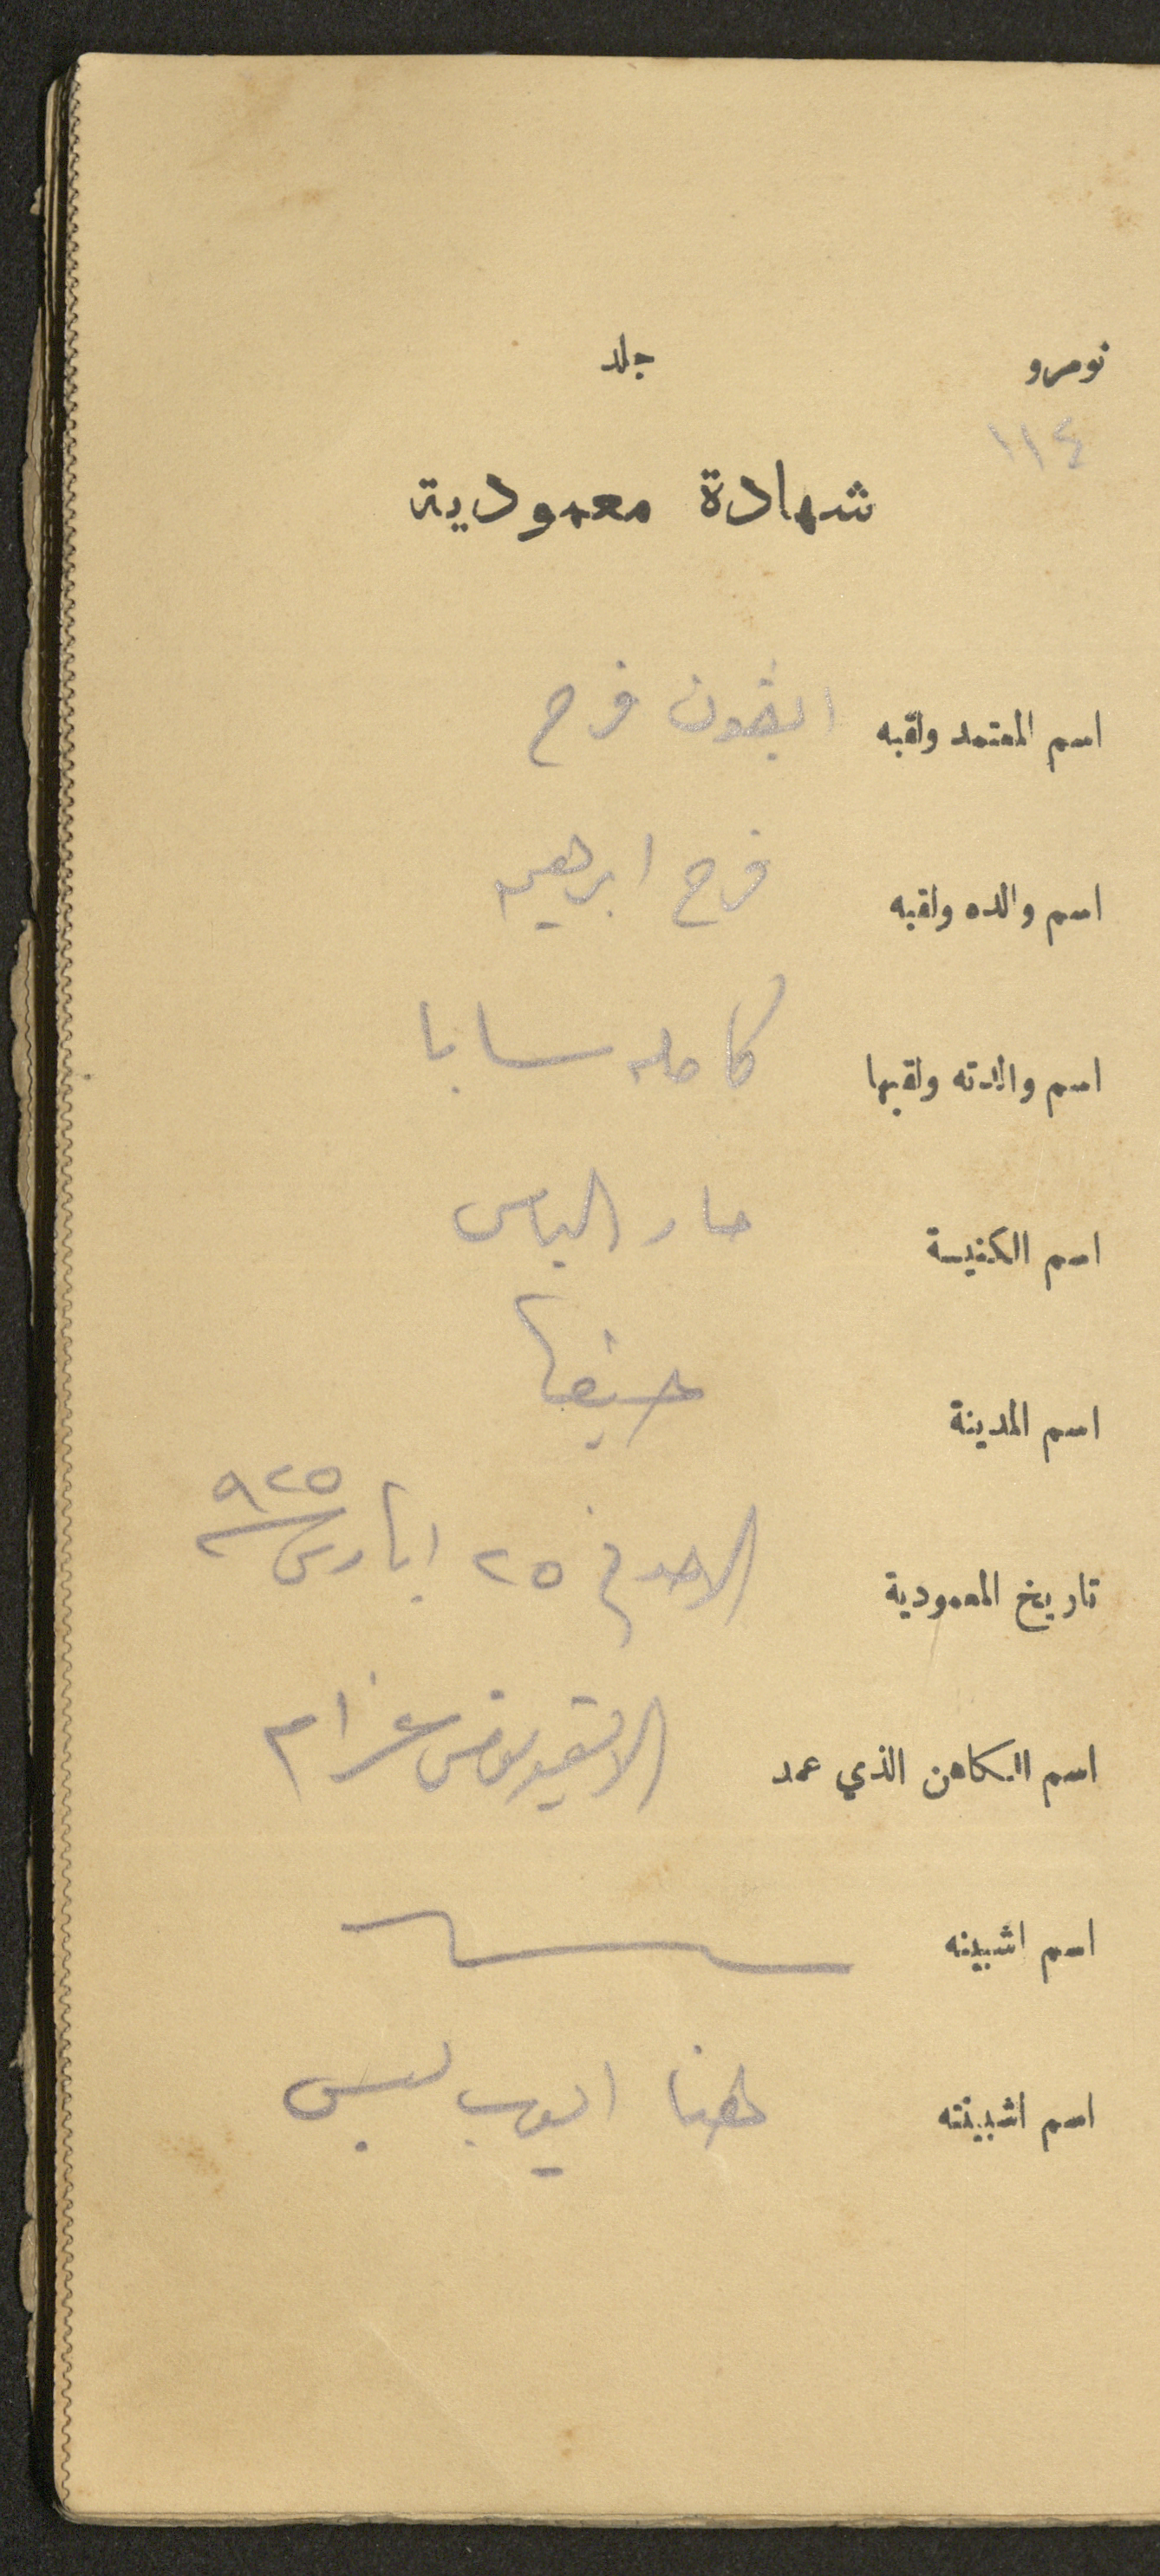 نومرو جلد
١١٤
شهادة معمودية
اسم المعتمد ولقبه فرح
اسم والده ولقبه فرح ابرهيم
اسم والدته ولقبها كامله سابا
اسم الكنيسة مار الياس
اسم المدينة حيفا
تاريخ المعمودية الاحد في ٢٥ ايار س ٩٢٥
اسم الكاهن الذي عمد
اسم اشبينه
اسم اشبينته ايوب